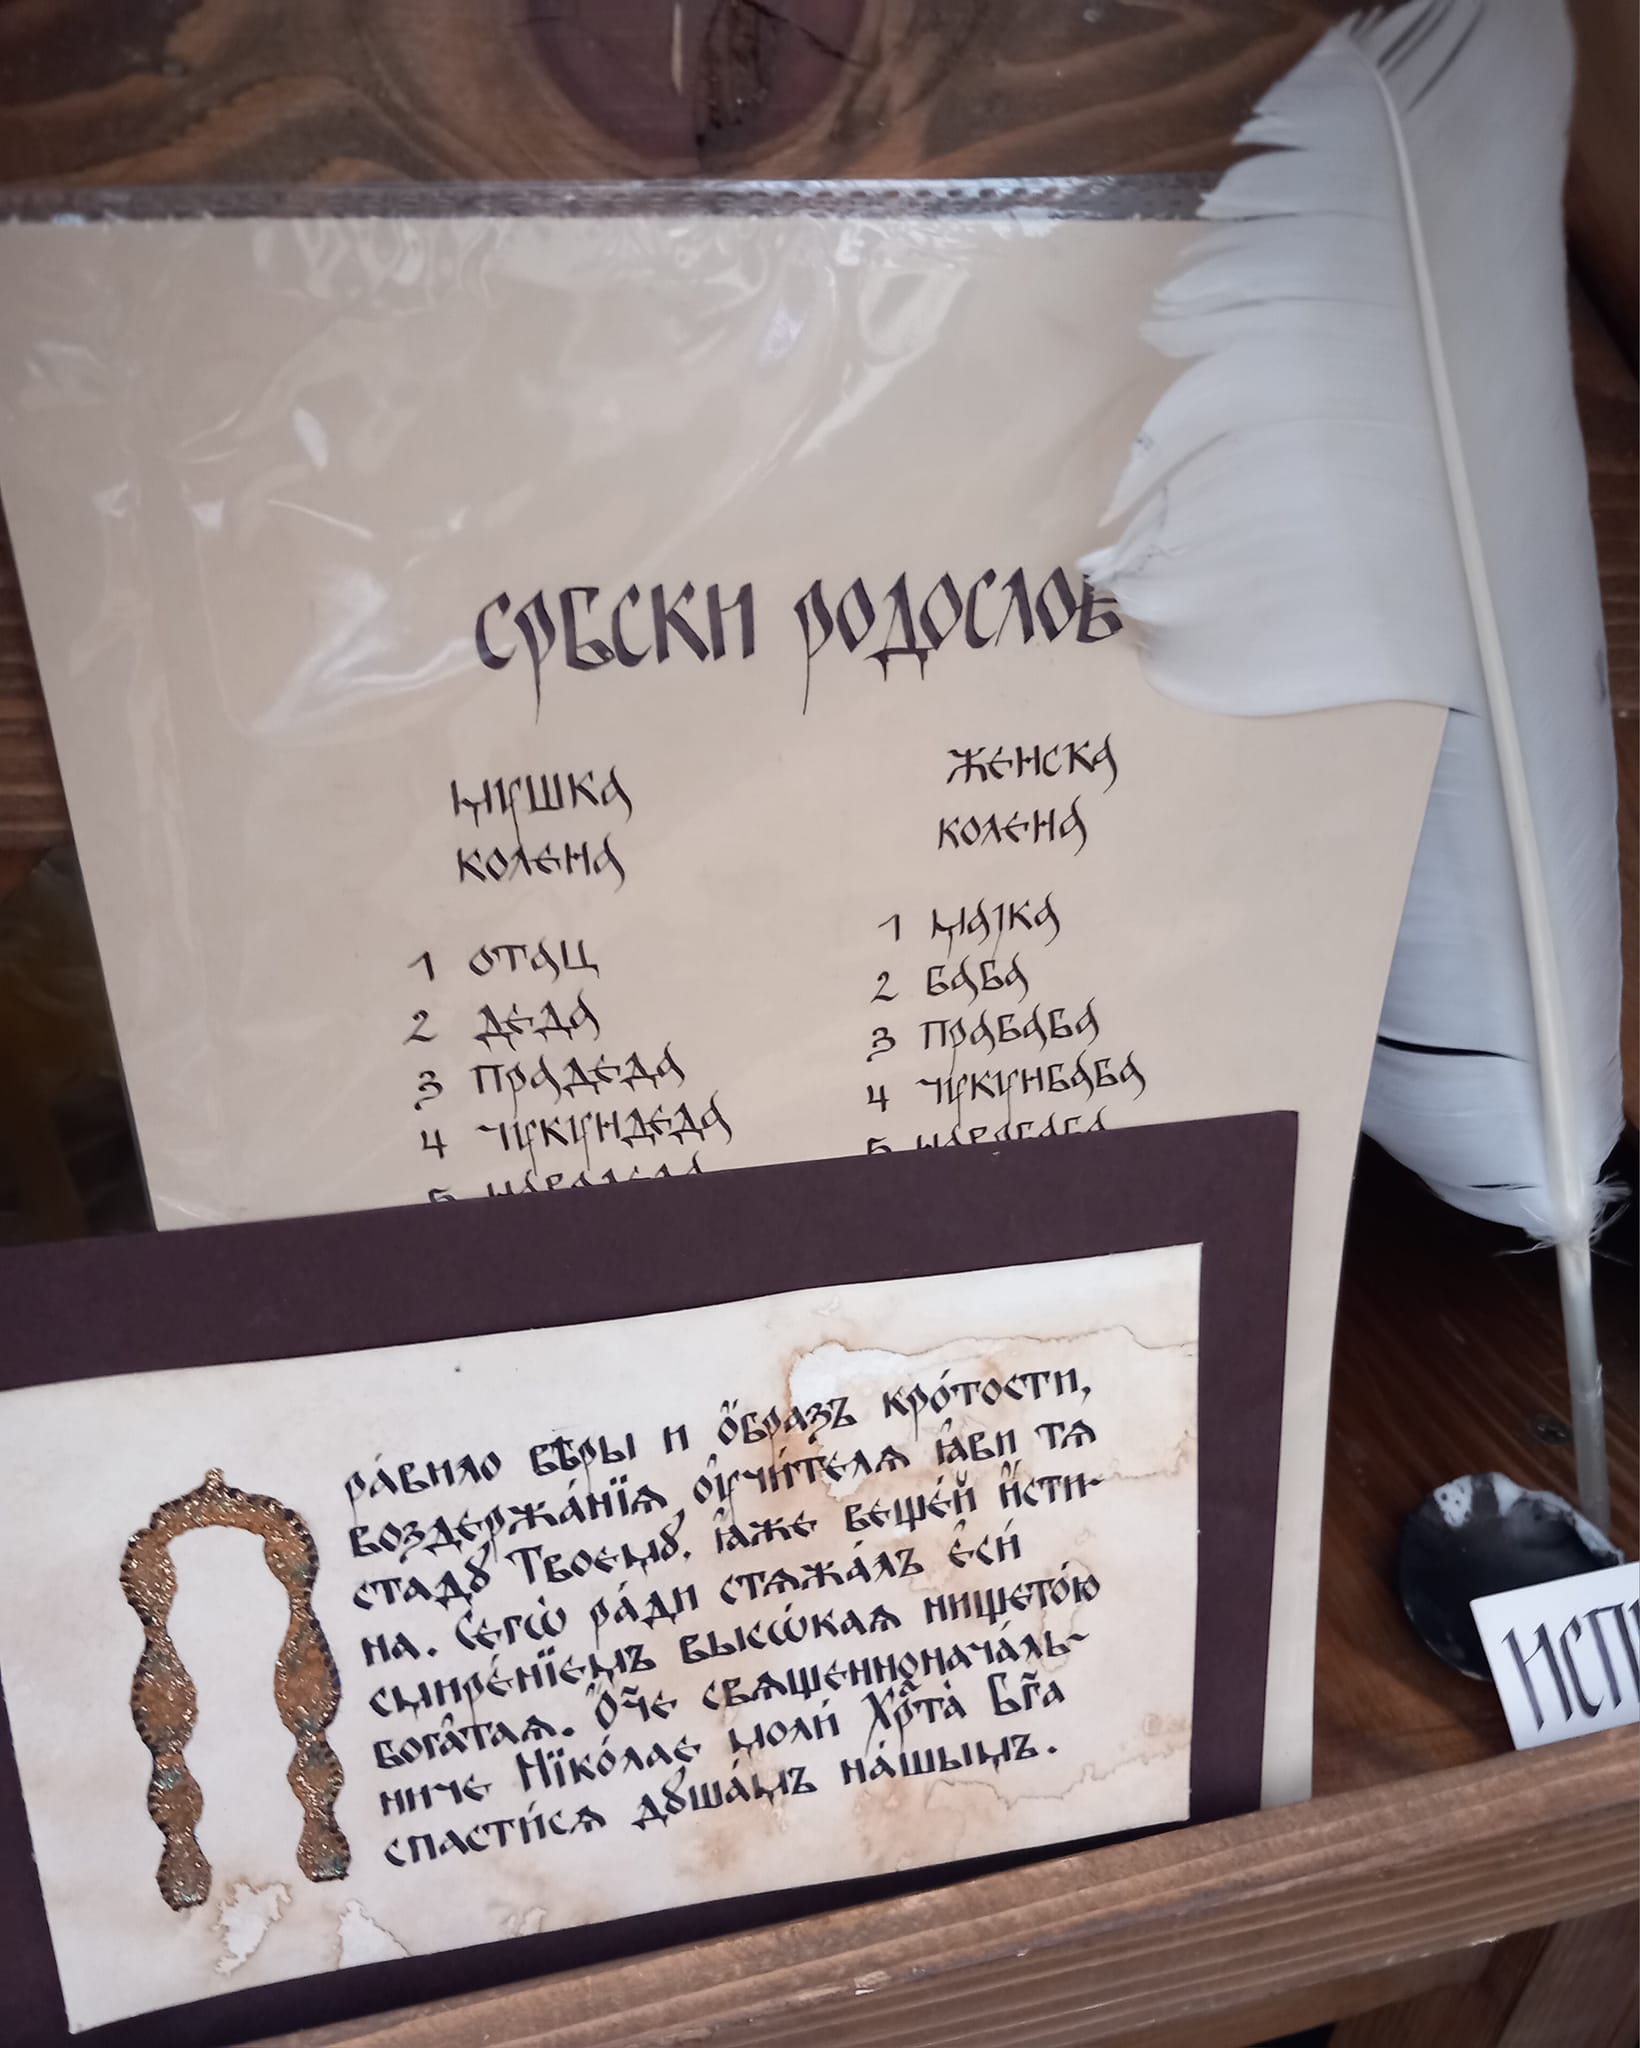 СРБСКИ РОДОСЛОВ
МУШКА
КОЛЕНА
1 ОТАЦ
2 ДЕДА
3 ПРАДЕДА
4 ЧУКУНДЕДА
ЖЕНСКА
КОЛЕНА
1 МАЈКА
2 БАБА
3 ПРАБАБА
4 ЧУКУНБАБА
Пра́вило вѣ́ры и ѻ҆́бразъ кро́тости,
воздержа́нїѧ ᲂу҆чи́телѧ ꙗ҆ви тѧ
стадꙋ Твоемꙋ. ꙗ҆же веще́й и҆́сти-
на. Сегѡ̀ ра́ди стѧжа́лъ є҆сѝ
смире́нїемъ высѡ́каѧ нището́ю
бога́таѧ. Ѻ҆́ч҃е свѧщеннонача́ль-
ниче Нїко́лае моли́ Хрⷭ҇та̀ Бг҃а
спасти́сѧ дꙋша́мъ на́шымъ.